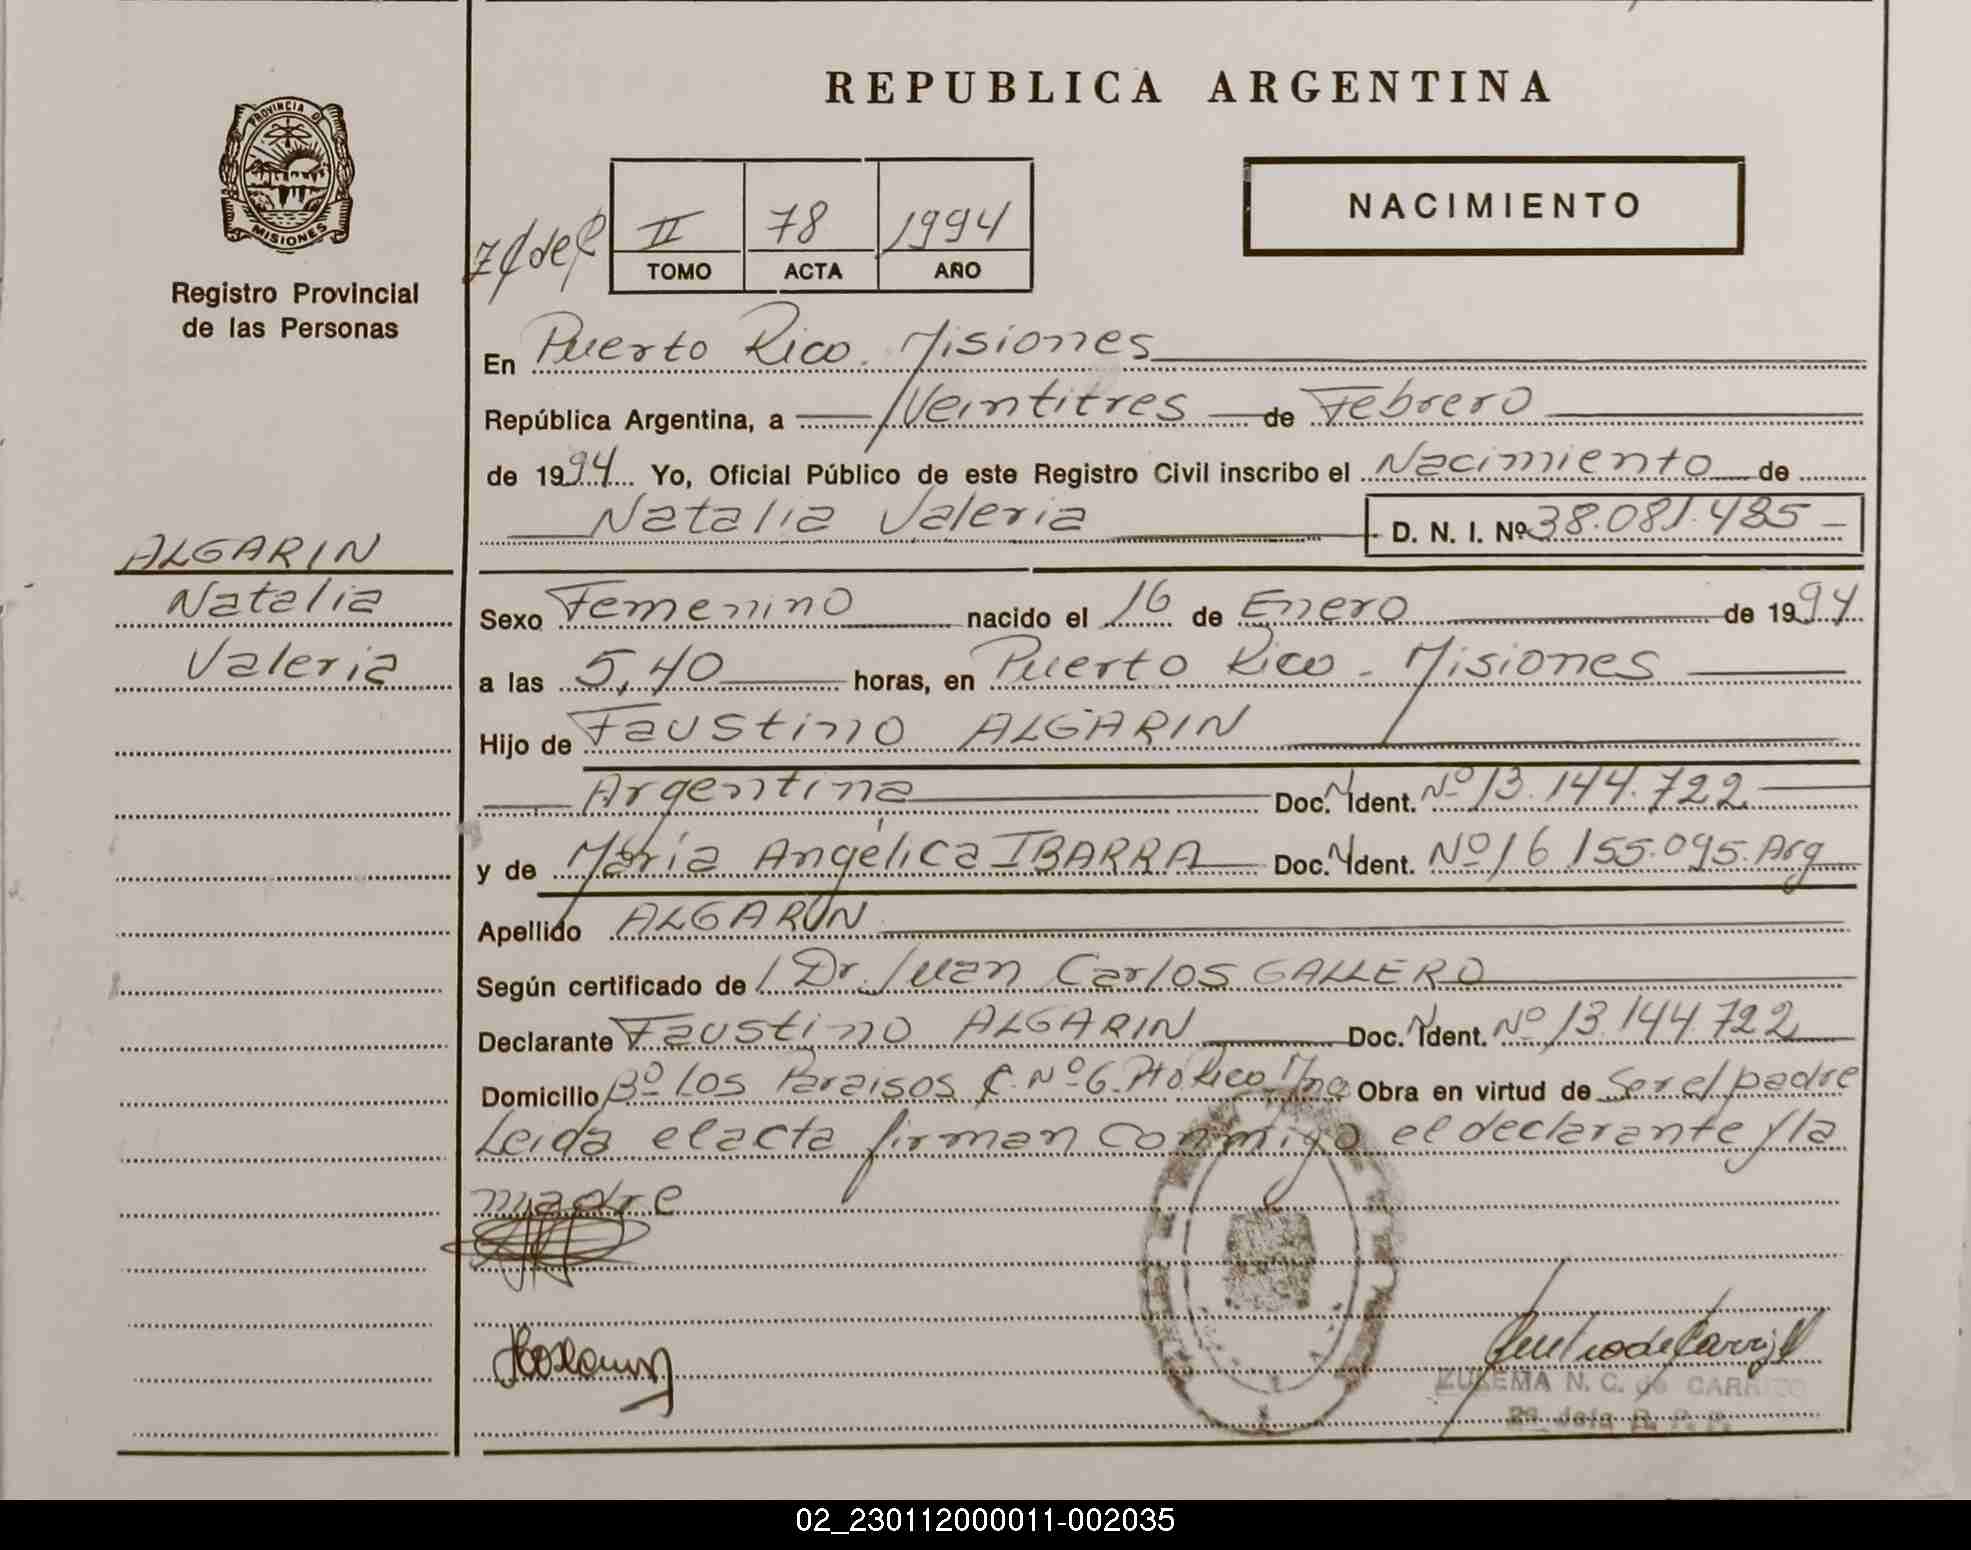 REPUBLICA ARGENTINA
PROVINCIA DE
MISIONES
Registro Provincial
de las Personas
II 78 1994
TOMO ACTA AÑO
NACIMIENTO
En Puerto Rico. Misiones
República Argentina, a Veintitres de Febrero
de 1994 Yo, Oficial Público de este Registro Civil inscribo el Nacimiento de
Natalia Valeria D. N. I. Nº 38.081.485
ALGARIN
Natalia
Valeria
Sexo Femenino nacido el 16 de Enero de 1994
a las 5,40 horas, en Puerto Rico - Misiones
Hijo de Faustino ALGARIN
Argentina Doc. N. Ident. Nº 13.144.722
y de María Angélica IBARRA Doc. N. Ident. Nº 16.155.095. Arg
Apellido ALGARIN
Según certificado de Dr. Juan Carlos GALLERO
Declarante Faustino ALGARIN Doc. N. Ident. Nº 13.144.722
Domicilio Bº Los Paraisos C. Nº 6. Pto Rico Mnes Obra en virtud de Ser el padre
Leída el acta firman conmigo el declarante y la
madre
ZULEMA N. C. de CARRIZO
02_230112000011-002035